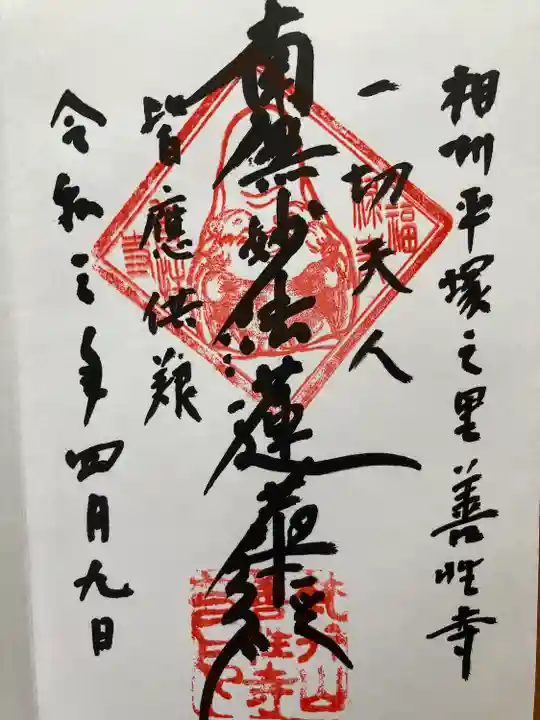 相州平塚之里善性寺
一切天人
南無妙法蓮華經
皆應供養
令和三年四月九日
福